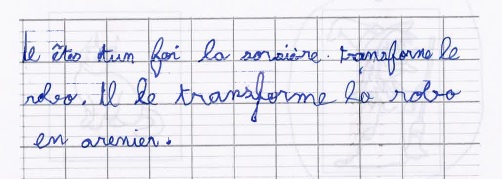 le êtes tun foi la sorsière. transforme le
robo. Il le transforme la robo
en arenier.